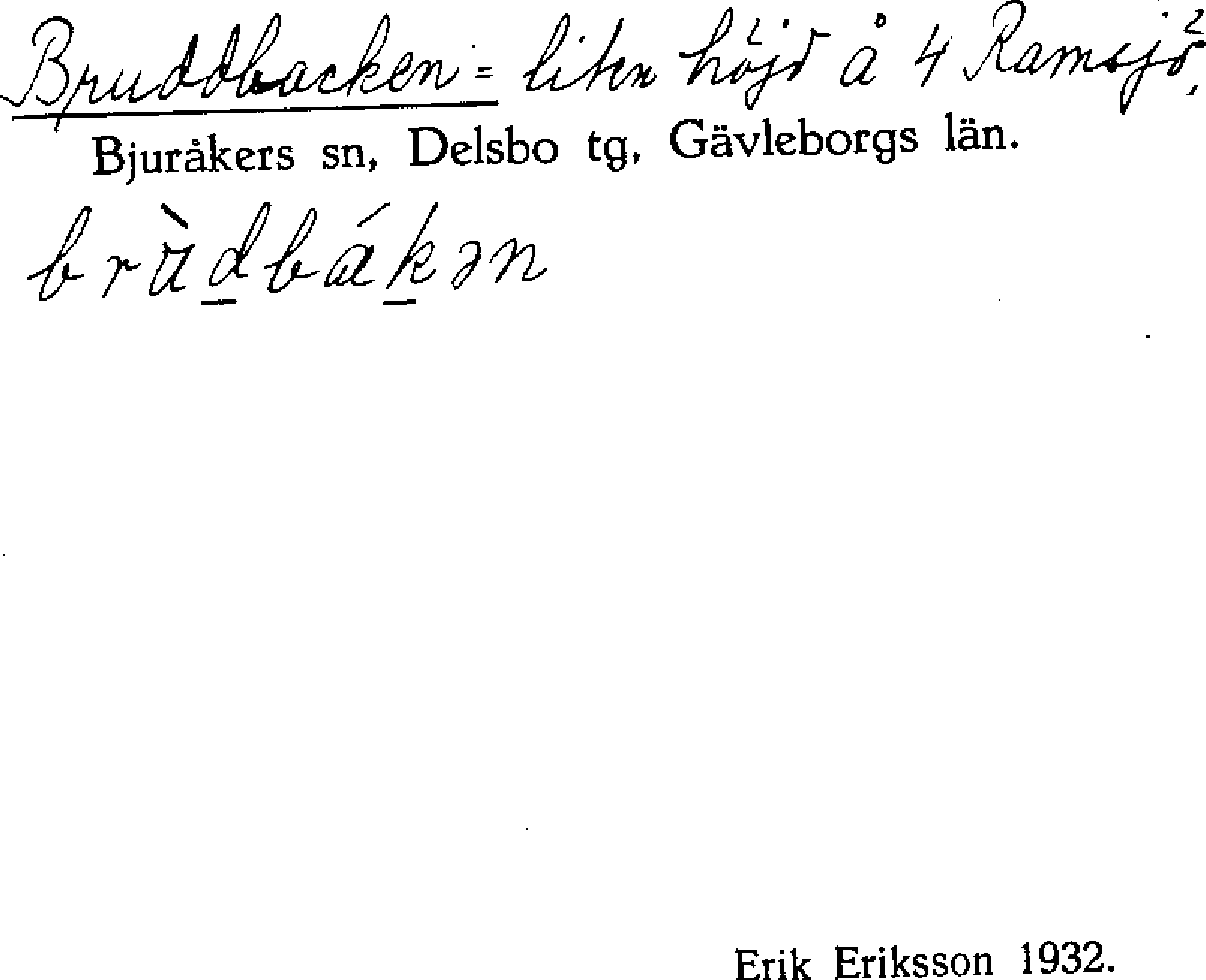 Bruddbacken = liten höjd å 4 Ramsjö²,
Bjuråkers sn, Delsbo tg, Gävleborgs län.
brùdbákən
Erik Eriksson 1932.